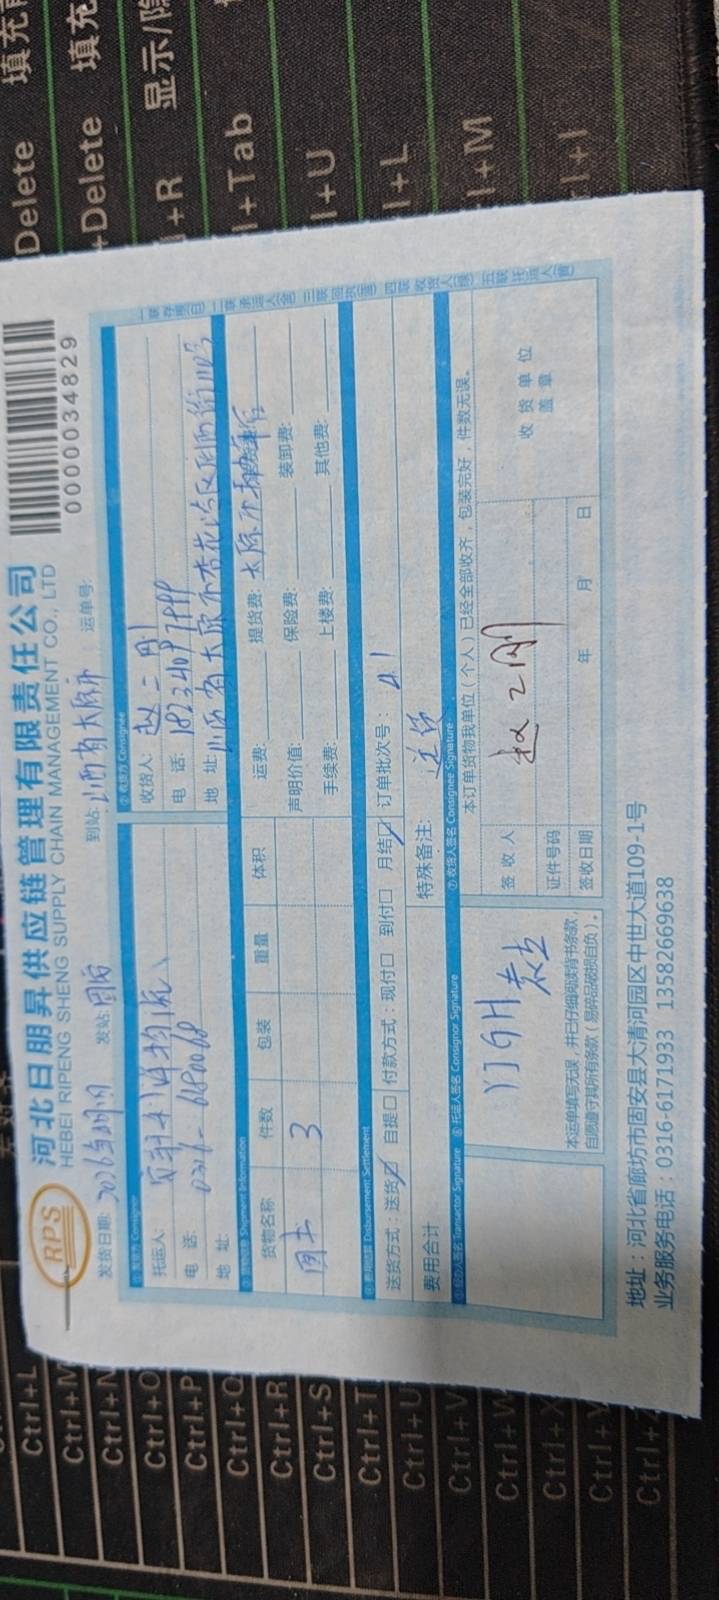 RPS
河北日朋昇供应链管理有限责任公司
HEBEI RIPENG SHENG SUPPLY CHAIN MANAGEMENT CO., LTD
0000034829
发货日期:
发站: 固安
到站: 山西省太原市
运单号:
①发货方 Consignor
托运人:
电 话: 0316-6180068
地 址:
②收货方 Consignee
收货人: 赵二刚
电 话: 18234097999
地 址: 山西省太原市杏花岭区
③货物信息 Shipment Information
货物名称 件数 包装 重量 体积
图书 3
运费: 提货费: 太原市
声明价值: 保险费: 装卸费:
手续费: 上楼费: 其他费:
④费用结算 Disbursement Settlement
送货方式：送货☑ 自提□ 付款方式：现付□ 到付□ 月结☑ 订单批次号：
费用合计
特殊备注： 送货
⑤经办人签名 Transactor Signature
⑥托运人签名 Consignor Signature
本运单填写无误，并已仔细阅读背书条款，
自愿遵守其所有条款（易碎品破损自负）。
⑦收货人签名 Consignee Signature
本订单货物我单位（个人）已经全部收齐，包装完好，件数无误。
签 收 人 赵二刚
证件号码
签收日期 年 月 日
收 货 单 位
盖 章
地址：河北省廊坊市固安县大清河园区中世大道109-1号
业务服务电话：0316-6171933 13582669638
Delete 填充
+Delete 填充
l+R 显示/隐
l+Tab
l+U
l+L
l+M
l+I
Ctrl+L
Ctrl+M
Ctrl+N
Ctrl+O
Ctrl+P
Ctrl+Q
Ctrl+R
Ctrl+S
Ctrl+T
Ctrl+U
Ctrl+V
Ctrl+W
Ctrl+X
Ctrl+Y
Ctrl+Z